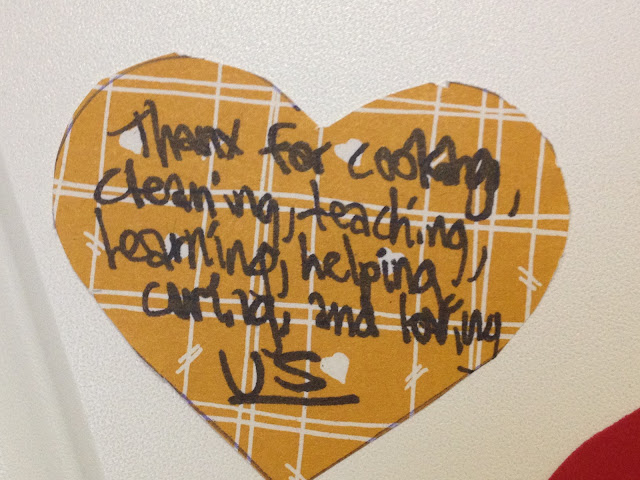 Thanx for cooking,
cleaning, teaching,
learning, helping,
caring, and loving
US